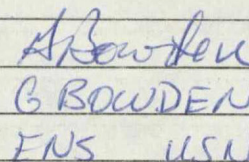 G Bowden
G BOWDEN
ENS USN